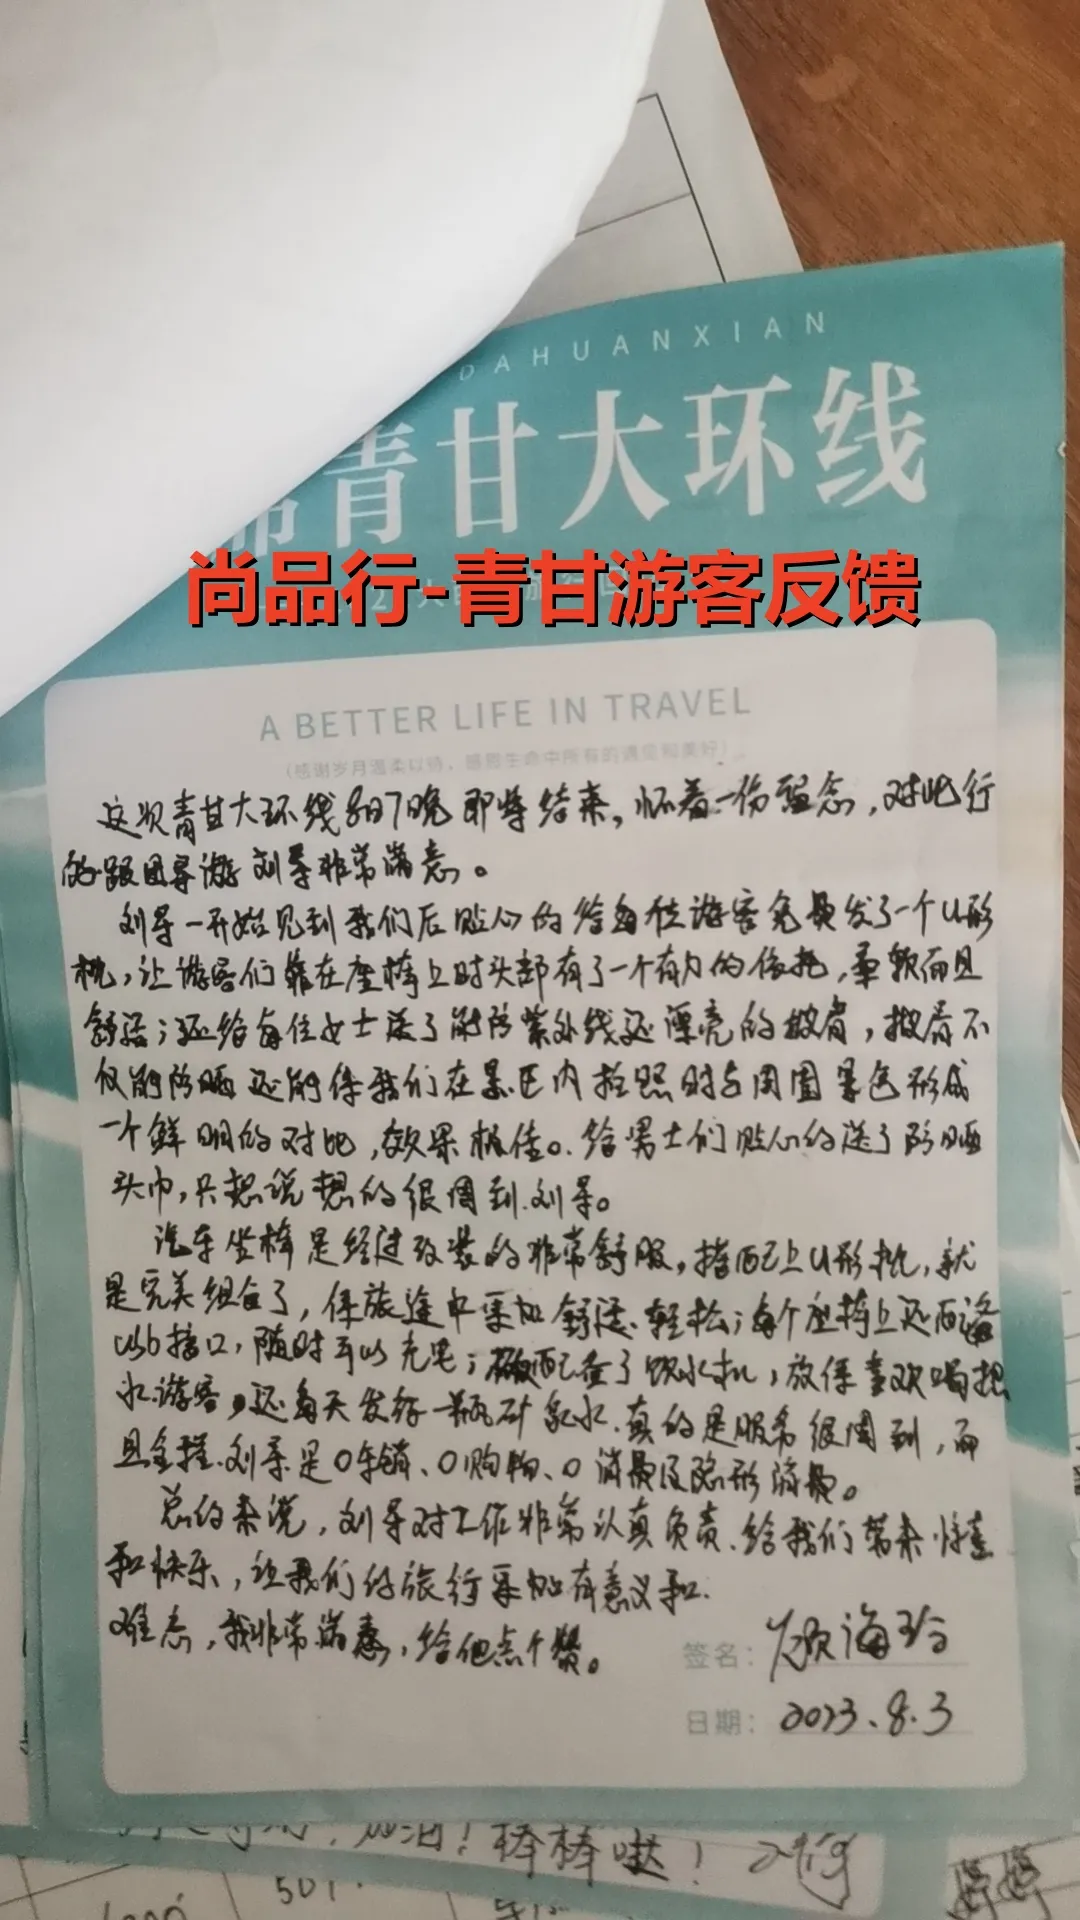 DAHUANXIAN
青甘大环线
尚品行-青甘游客反馈
A BETTER LIFE IN TRAVEL
(感谢岁月温柔以待，感恩生命中所有的遇见和美好)
这次青甘大环线8日7晚即将结束，怀着一份留念，对此行
的跟团导游刘导非常满意。
刘导一开始见到我们后贴心的给每位游客免费发了一个U形
枕，让游客们靠在座椅上时头部有了一个有力的依托，柔软而且
舒适；还给每位女士送了能防紫外线还漂亮的披肩，披肩不
仅能防晒还能使我们在景区内拍照时与周围景色形成
一个鲜明的对比，效果极佳。给男士们贴心的送了防晒
头巾，只想说想的很周到刘导。
汽车坐椅是经过改装的非常舒服，搭配上U形枕，就
是完美组合了，使旅途中更加舒适、轻松；每个座椅上还配备
usb接口，随时可以充电；配备了饮水机，放便喜欢喝热
水游客，还每天发放一瓶矿泉水.真的是服务很周到，而
且全程.刘导是0车销、0购物、0消费及隐形消费。
总的来说，刘导对工作非常认真负责.给我们带来惊喜
和快乐，让我们的旅行更加有意义和.
难忘，我非常满意，给他点个赞。
签名：顾海玲
日期：2023.8.3
加油！棒棒哒！
501.
婷婷